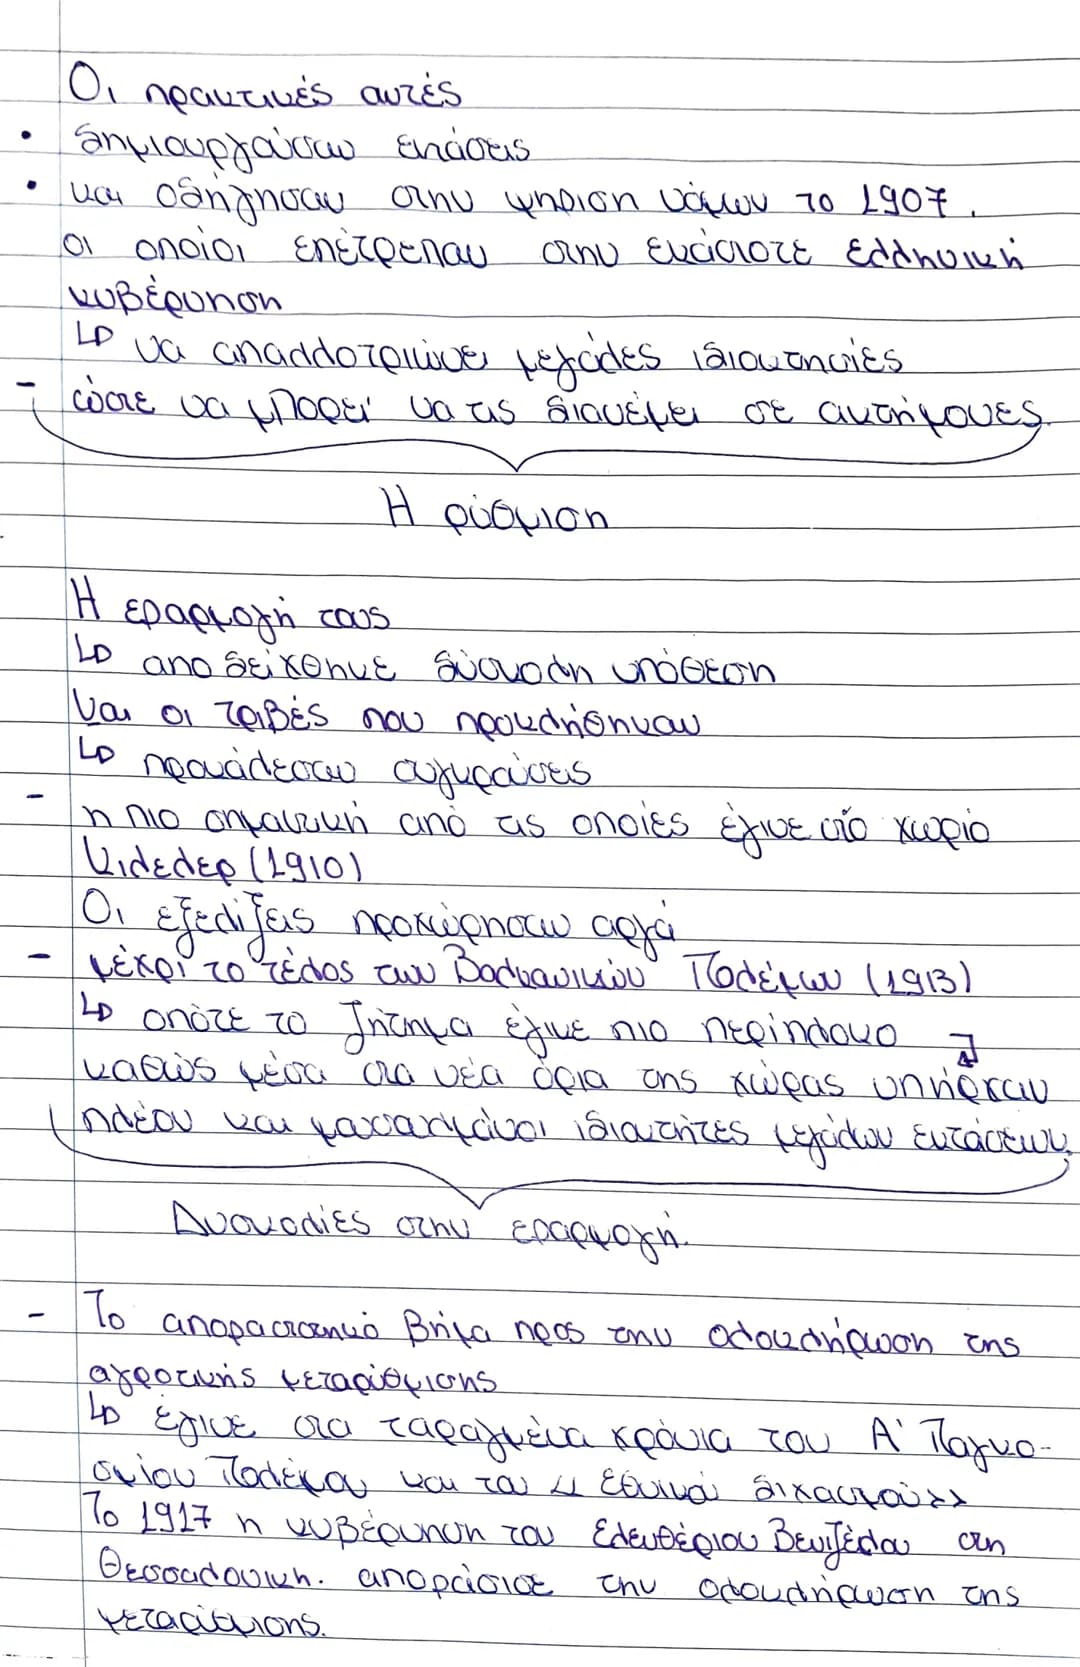 Οι πρακτικές αυτές
• δημιουργούσαν εντάσεις
• και οδήγησαν στην ψήφιση νόμων το 1907,
οι οποίοι επέτρεπαν στην εκάστοτε ελληνική
κυβέρνηση
↳ να απαλλοτριώνει μεγάλες ιδιοκτησίες
- ώστε να μπορεί να τις διανέμει σε ακτήμονες.
Η ρύθμιση
Η εφαρμογή τους
↳ αποδείχθηκε δύσκολη υπόθεση
και οι τριβές που προκλήθηκαν
↳ προκάλεσαν συγκρούσεις
- η πιο σημαντική από τις οποίες έγινε στο χωριό
Κιλελέρ (1910)
Οι εξελίξεις προχώρησαν αργά
- μέχρι το τέλος των Βαλκανικών Πολέμων (1913)
↳ οπότε το ζήτημα έγινε πιο περίπλοκο
καθώς μέσα στα νέα όρια της χώρας υπήρχαν
πλέον και μουσουλμάνοι ιδιοκτήτες μεγάλων εκτάσεων.
Δυσκολίες στην εφαρμογή.
- Το αποφασιστικό βήμα προς την ολοκλήρωση της
αγροτικής μεταρρύθμισης
↳ έγινε στα ταραγμένα χρόνια του Α' Παγκο-
σμίου Πολέμου και του << Εθνικού διχασμού>>
Το 1917 η κυβέρνηση του Ελευθέριου Βενιζέλου στη
Θεσσαλονίκη. αποφάσισε την ολοκλήρωση της
μεταρρύθμισης.